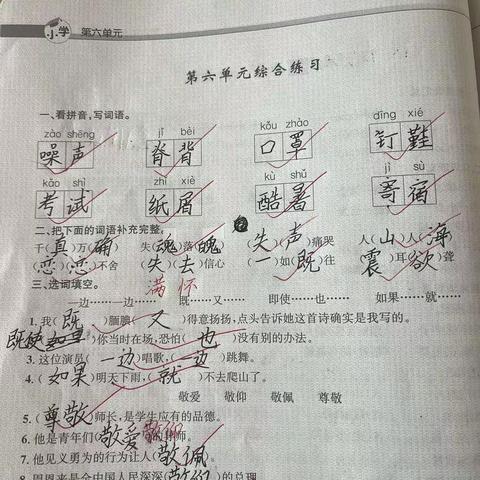 小学 第六单元
第六单元综合练习
一、看拼音,写词语。
zào shēng jǐ bèi kǒu zhào dīng xié
噪声 脊背 口罩 钉鞋
kǎo shì zhǐ xiè kù shǔ jì sù
考试 纸屑 酷暑 寄宿
二、把下面的词语补充完整。
千(真)万(确) 失(魂)落(魄) (失)(声)痛哭 人(山)人(海)
(恋)(恋)不舍 (失)(去)信心 (一)如(既)往 (震)耳(欲)聋
三、选词填空。 满怀
一边……一边 既……又 即使……也 如果……就……
1. 我(既)腼腆(又)得意扬扬,点头告诉她这首诗确实是我写的。
既使 你当时在场,恐怕(也)没有别的办法。
3. 这位演员(一边)唱歌,(一边)跳舞。
4. (如果)明天下雨,(就)不去爬山了。
敬爱 敬仰 敬佩 尊敬
5. (尊敬)师长,是学生应有的品德。
6. 他是青年们(敬爱 敬仰 师。
7. 他见义勇为的行为让人(敬佩
8. 周恩来是全中国人民深深(敬仰)的总理